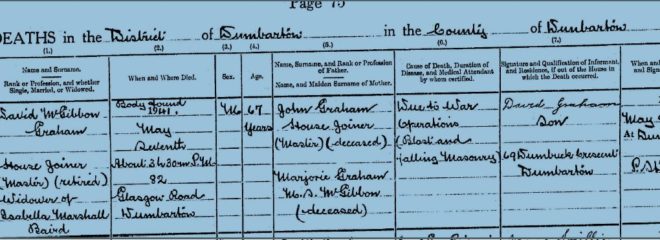 Page 75
DEATHS in the District of Dumbarton in the County of Dumbarton
(1.) (2.) (3.) (4.) (5.) (6.) (7.)
Name and Surname.
Rank or Profession, and whether
Single, Married, or Widowed.
When and Where Died.
Sex.
Age.
Name, Surname, and Rank or Profession
of Father.
Name, and Maiden Surname of Mother.
Cause of Death, Duration of
Disease, and Medical Attendant
by whom certified.
Signature and Qualification of Informant,
and Residence, if out of the House in
which the Death occurred.
When and
and Sign
David McGibbon
Graham
House Joiner
(Master) (retired)
Widower of
Isabella Marshall
Baird
Body found
1941.
May
Seventh
About 3h 30m P.M.
82
Glasgow Road
Dumbarton
M
67
Years
John Graham
House Joiner
(Master) (deceased)
Marjorie Graham
M.S. McGibbon
(deceased)
Due to War
Operations
(Blast and
falling Masonry)
David Graham
Son
69 Dumbuck Crescent
Dumbarton
May
At Du